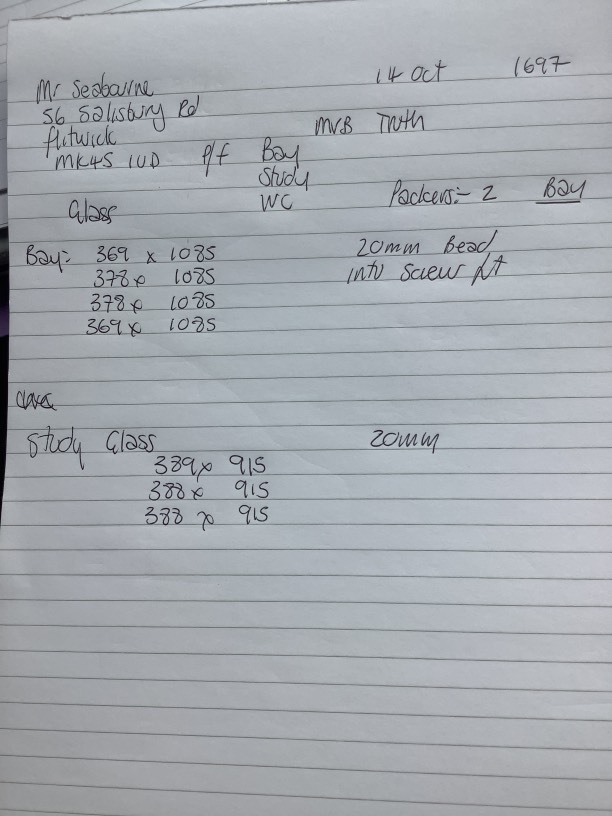 Mr Seabourne 14 Oct 1697
56 Salisbury Rd
flitwick MVB Truth
MK45 1UD P/f Bay
Study
WC Packers:- 2 Bay
Glass
Bay:- 369 x 1085 20mm Bead
378 x 1085 into screw
378 x 1085
369 x 1085
Study Glass 20mm
389 x 915
388 x 915
388 x 915